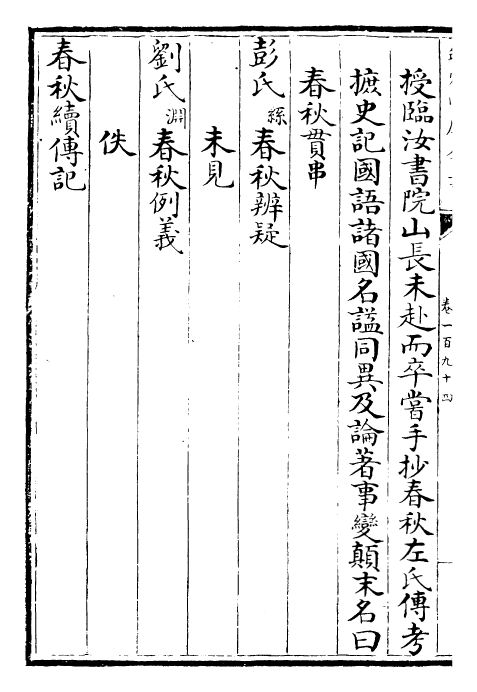 卷一百九十四
授臨汝書院山長未赴而卒嘗手抄春秋左氏傳考
摭史記國語諸國名諡同異及論著事變顛末名曰
春秋貫串
彭氏絲春秋辨疑
未見
劉氏淵春秋例義
佚
春秋續傳記